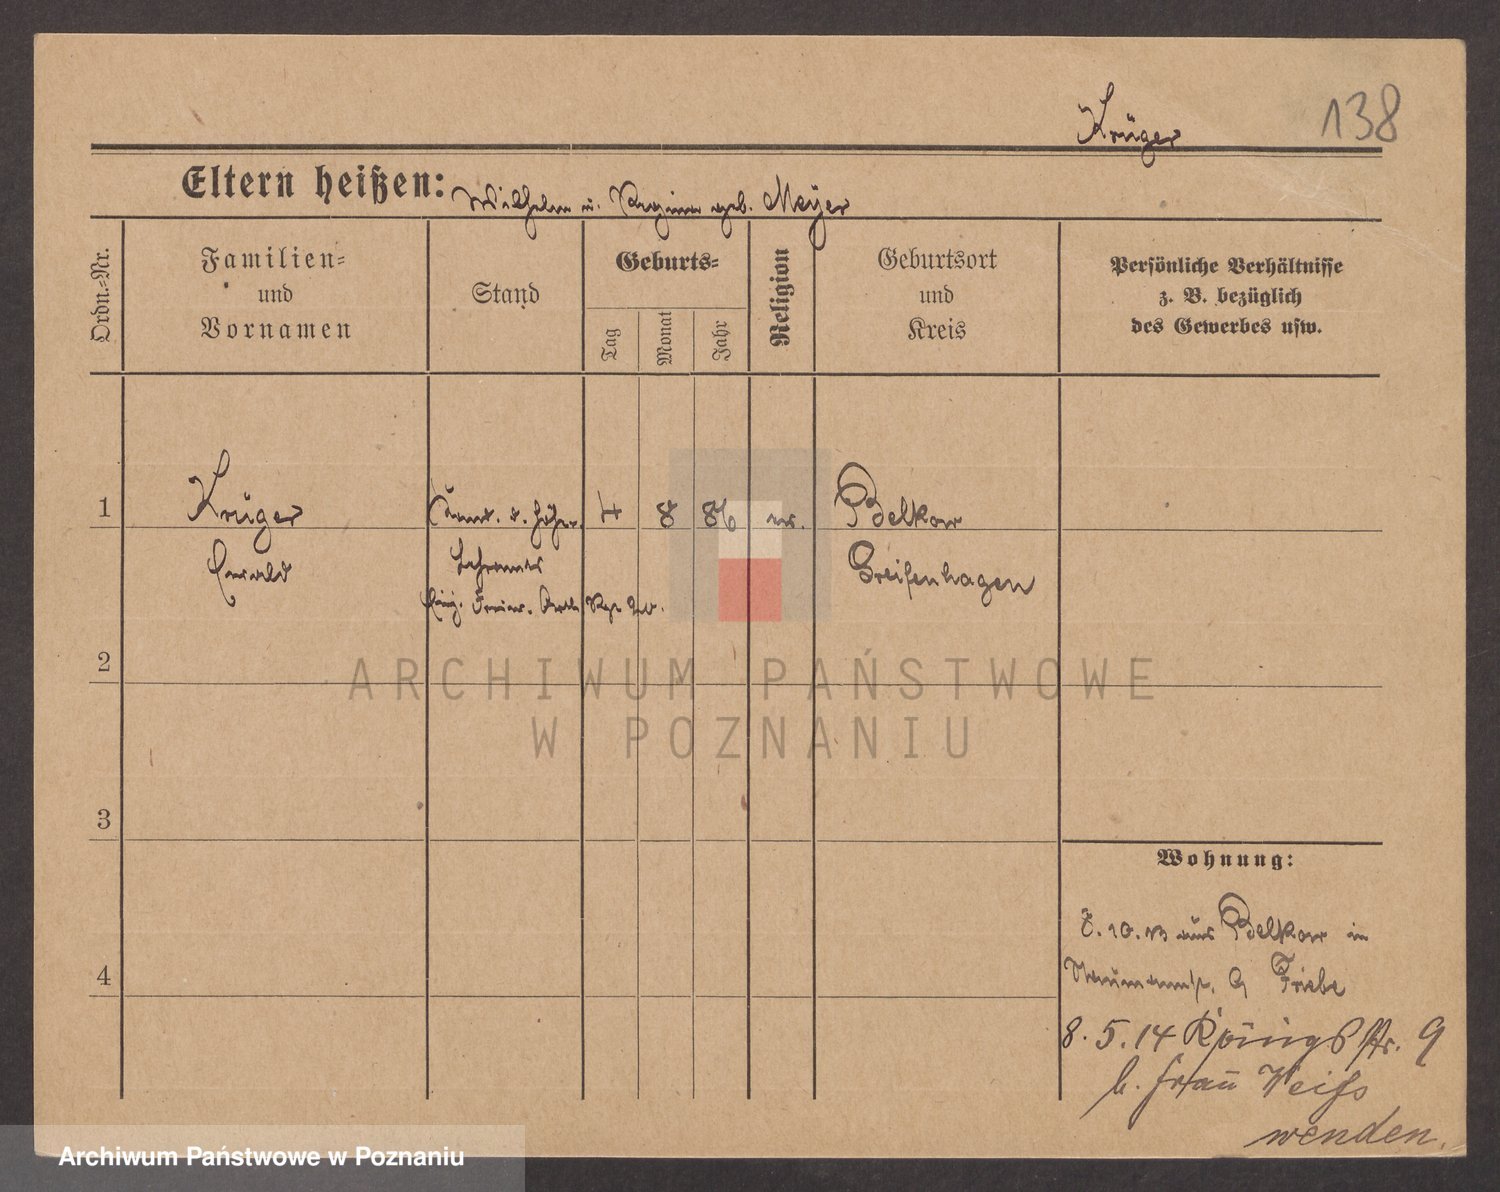 Krüger 138
Eltern heißen: Wilhelm u. Regine geb. Meyer
Ordn.-Nr.
Familien-
und
Vornamen
Stand
Geburts-
Tag
Monat
Jahr
Religion
Geburtsort
und
Kreis
Persönliche Verhältnisse
z. B. bezüglich
des Gewerbes usw.
1 Krüger Cand. d. höher. 4 8 86 ev. Belkow
Ewald Lehramts Greifenhagen
Einj. Freiw. Rgt
2
ARCHIWUM PAŃSTWOWE
W POZNANIU
3
Wohnung:
8.10.13 aus Belkow in
4 Naumannstr. 9 Friebe
8.5.14 Königstr. 9
b. Frau Weiss
wenden.
Archiwum Państwowe w Poznaniu